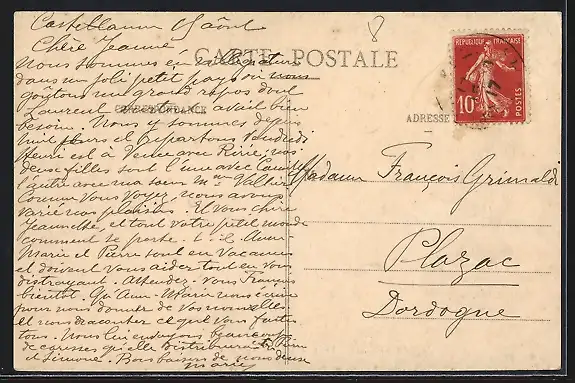 Castellane 15 août
8
Chère Jeanne
CARTE POSTALE
Nous sommes en villégiature
dans un joli petit pays où nous
goûtons un grand repos dont
Laurent avait bien
CORRESPONDANCE
besoin. Nous y sommes depuis
huit jours et repartons Vendredi
Henri est à Vence avec Ririe; nos
deux filles sont l'une avec
l'autre avec ma sœur Mme Vallier
Comme vous voyez, nous avons
varié nos plaisirs. Et vous chère
Jeannette, et tout votre petit monde
comment se porte-t-il. Anne
Marie et Pierre sont en vacances
et doivent vous aider tout en vous
distrayant. Attendez-vous François
bientôt. Qu'Anne-Marie nous écrive
pour nous donner de vos nouvelles
et nous raconter ce que vous faites
tous. Nous lui envoyons beaucoup
de caresses qu'elle distribuera à
et Simone. Bons baisers de nous deux
Marie
REPUBLIQUE FRANÇAISE
10c
POSTES
ADRESSE
Madame François Grimaldi
Plazac
Dordogne